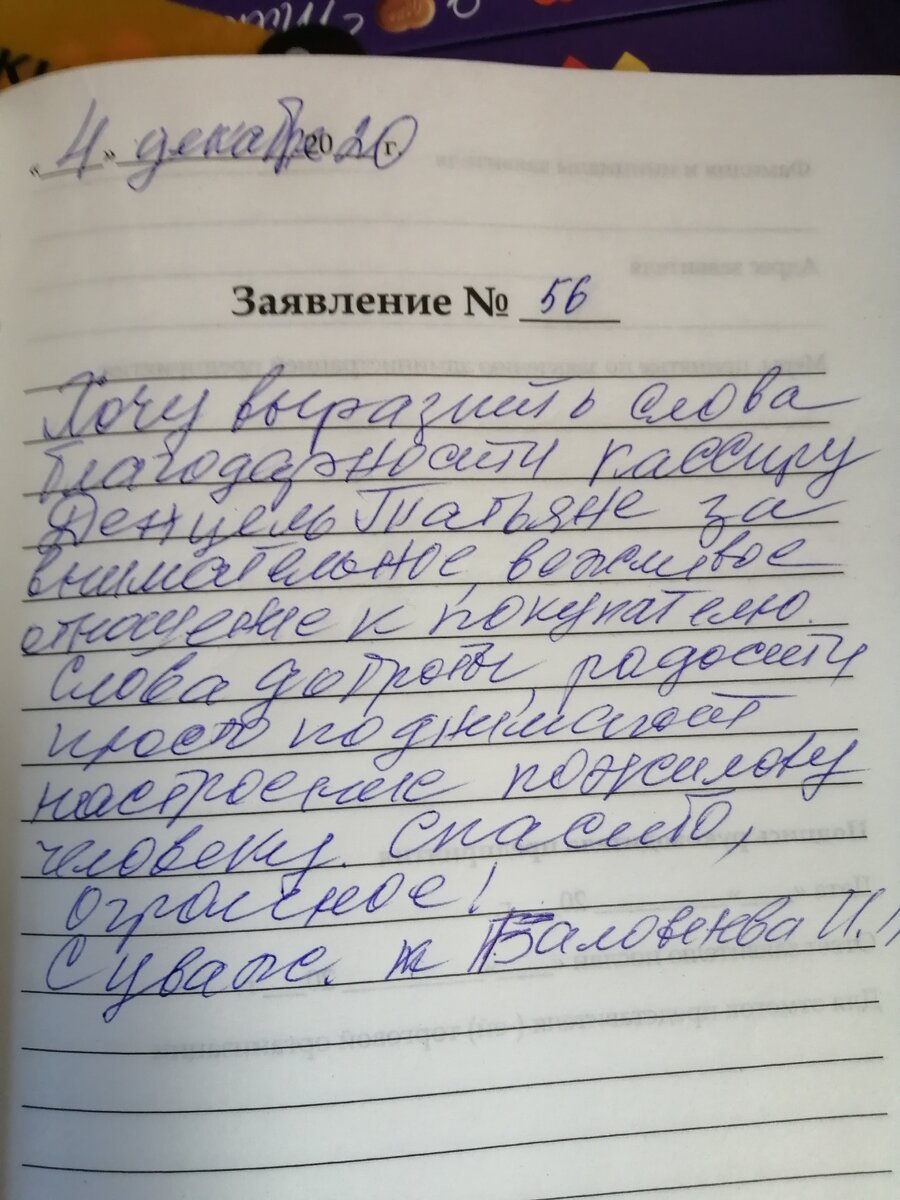 «4» декабря 2020 г.
Заявление № 56
Хочу выразить слова
благодарности кассиру
Денцель Татьяне за
внимательное, вежливое
отношение к покупателю.
Слова доброты, радости
просто поднимают
настроение пожилому
человеку. Спасибо,
огромное!
С уваж. к Баловнева И.